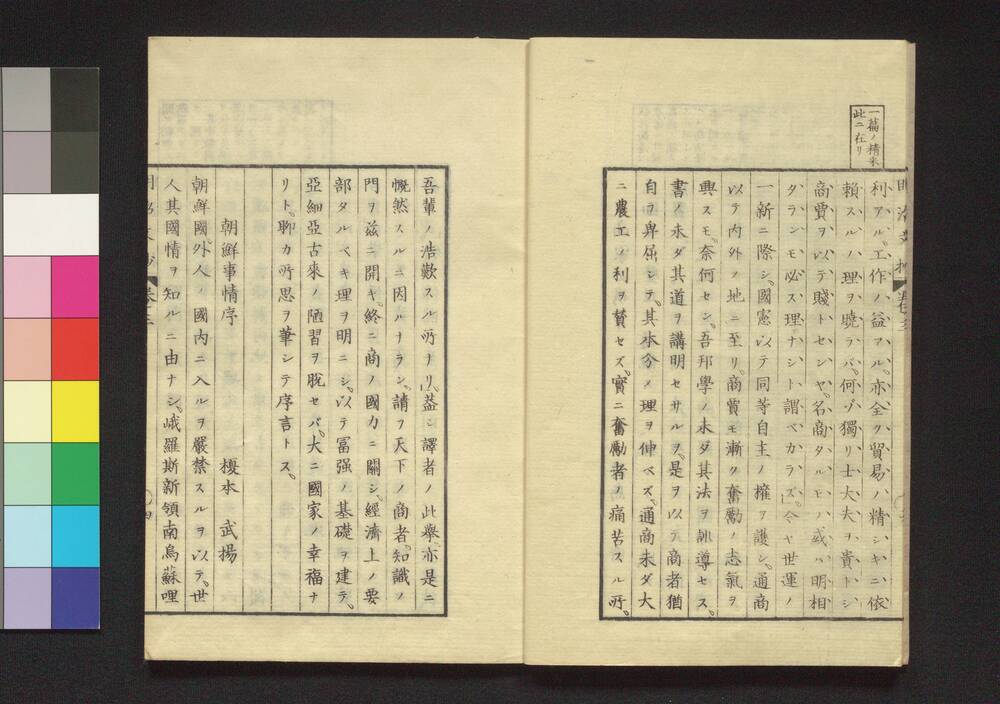 一篇ノ精采
此ニ在リ
利アル。工作ノ益アル。亦全ク貿易ノ精シキニ依
賴スルノ理ヲ曉ラバ。何ゾ獨リ士大夫ヲ貴トシ
商賈ヲ以テ賤トセンヤ。名商タルモノ或ハ明相
タランモ必ス理ナシト謂ベカラズ。今ヤ世運ノ
一新ニ際シ。國憲以テ同等自主ノ權ヲ護シ。通商
以テ內外ノ地ニ至リ。商賈モ漸ク奮勵ノ志氣ヲ
興スモ。奈何セン。吾邦學ノ未ダ其法ヲ訓導セス。
書ノ未ダ其道ヲ講明セサルヲ。是ヲ以テ商者猶
自ヲ卑屈シテ。其本分ノ理ヲ伸ベズ。通商未ダ大
ニ農工ノ利ヲ贊セズ。實ニ奮勵者ノ痛苦スル所。
吾輩ノ浩歎スル所ナリ。蓋シ譯者ノ此擧。亦是ニ
慨然スルニ因ルナラン。請フ天下ノ商者。知識ノ
門ヲ茲ニ開キ。終ニ商ノ國力ニ關シ。經濟上ノ要
部タルベキ理ヲ明ニシ。以テ富强ノ基礎ヲ建テ。
亞細亞古來ノ陋習ヲ脫セバ。大ニ國家ノ幸福ナ
リト。聊カ所思ヲ筆シテ序言トス。
朝鮮事情序
榎本 武揚
朝鮮國外人ノ國內ニ入ルヲ嚴禁スルヲ以テ。世
人其國情ヲ知ルニ由ナシ。峨羅斯新領南烏蘇哩